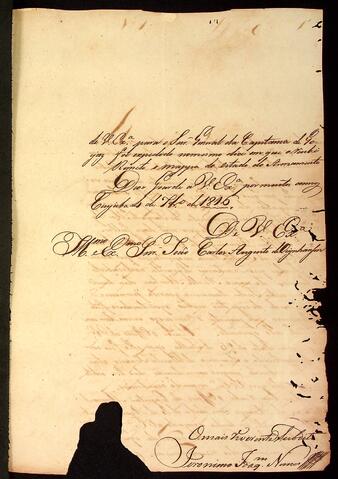 de V. Ex.ª para o Snr. General da Capitania de Go-
yaz foi expedido no mesmo dia em que o recebi
Remeto o mappa do estado do Armamento
Deos Guarde a V. Ex.ª por muitos annos
Cuyabá 4 de 1816,
De V. Ex.ª
Ill.mo e Ex.mo Snr. João Carlos Augusto d'Oyenhausen
O mais reverente Subdito
Jeronimo Joaq.m Nunes